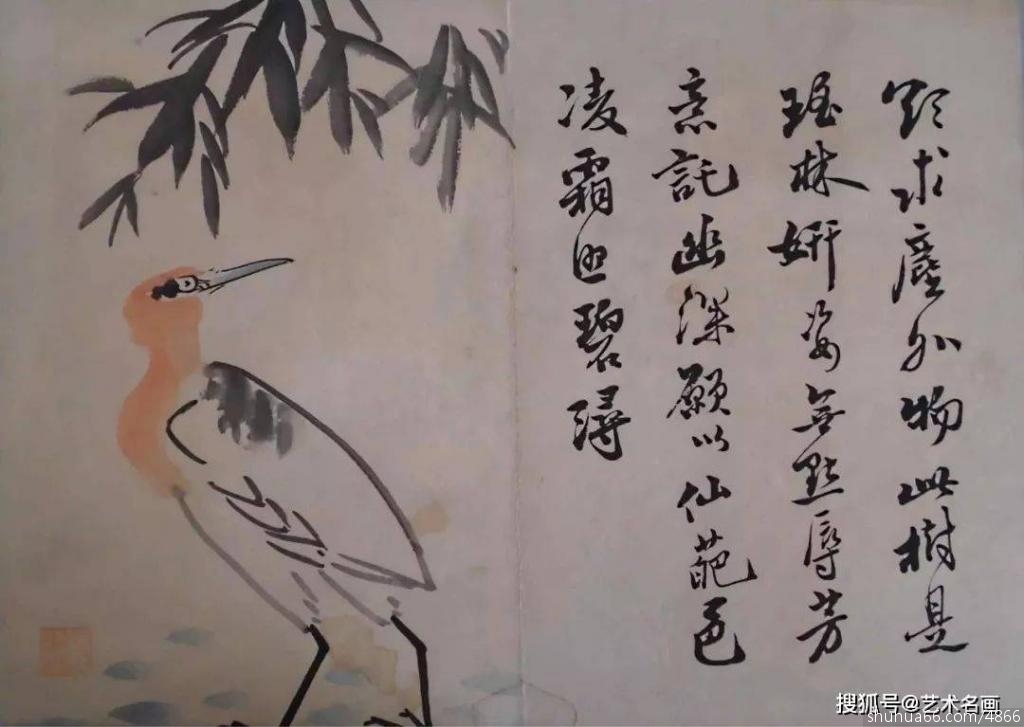 欲求塵外物此樹是
瑤林妍姿無點辱芳
意託幽深願以仙葩色
凌霜照碧潯
搜狐号@艺术名画
shuhua66.com/4866